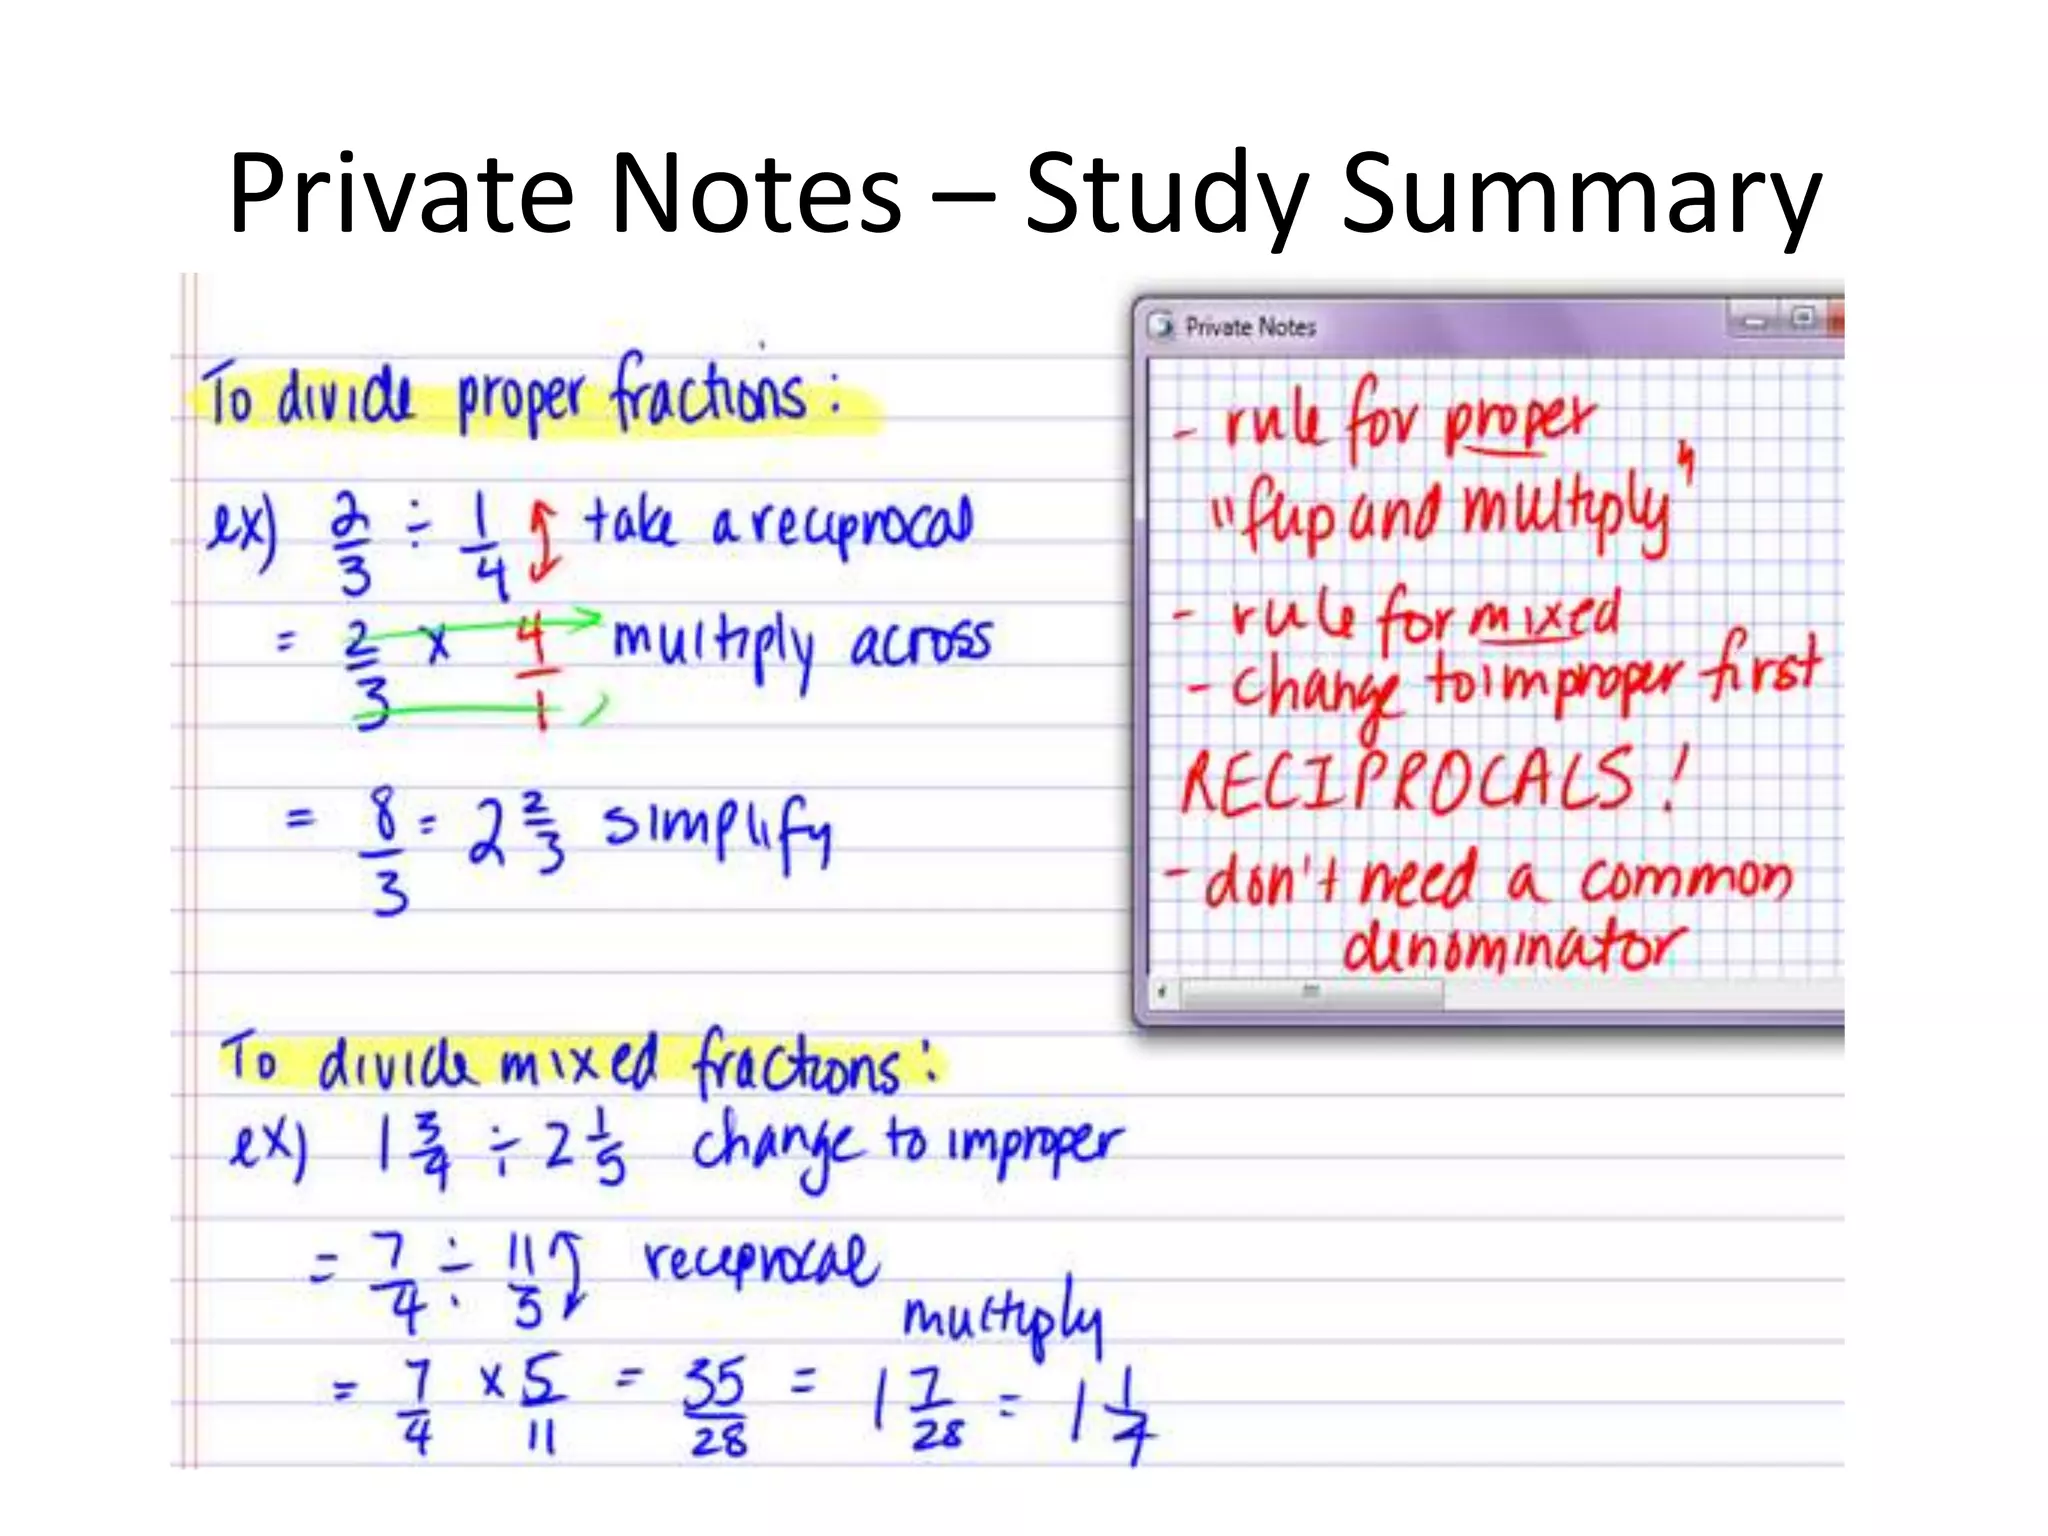 Private Notes – Study Summary
To divide proper fractions:
ex) 2/3 ÷ 1/4 take a reciprocal
= 2/3 x 4/1 multiply across
= 8/3 = 2 2/3 simplify
To divide mixed fractions:
ex) 1 3/4 ÷ 2 1/5 change to improper
= 7/4 ÷ 11/5 reciprocal
multiply
= 7/4 x 5/11 = 35/28 = 1 7/28 = 1 1/4
Private Notes
- rule for proper
"flip and multiply"
- rule for mixed
- change to improper first
RECIPROCALS!
- don't need a common
denominator